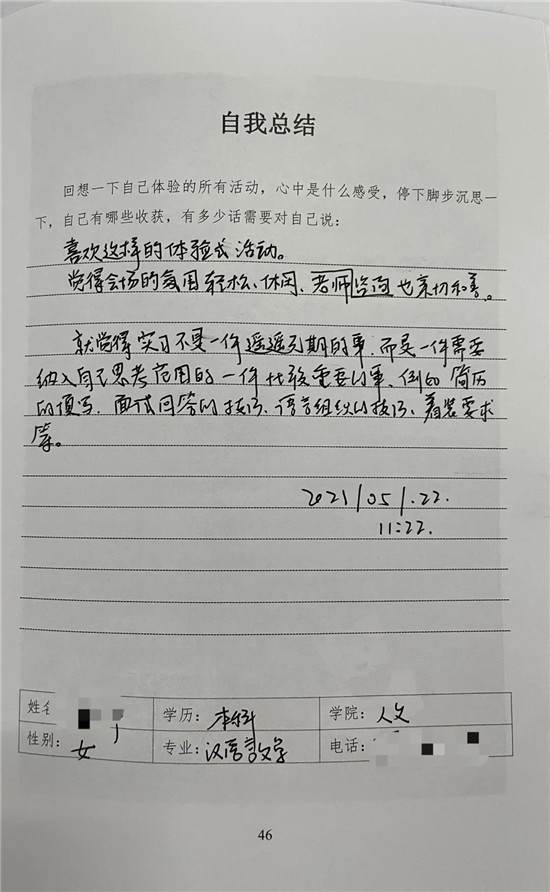 自我总结
回想一下自己体验的所有活动，心中是什么感受，停下脚步沉思一
下，自己有哪些收获，有多少话需要对自己说：
喜欢这样的体验式活动。
觉得会场的氛围轻松、休闲、老师咨询也亲切和善。
就觉得实习不是一件遥遥无期的事，而是一件需要
纳入自己思考范围的一件比较重要的事、例如 简历
的填写、面试问答的技巧、语言组织的技巧、着装要求
等。
2021/05/.22.
11:22.
姓名 学历：本科 学院：人文
性别：女 专业：汉语言文学 电话：
46